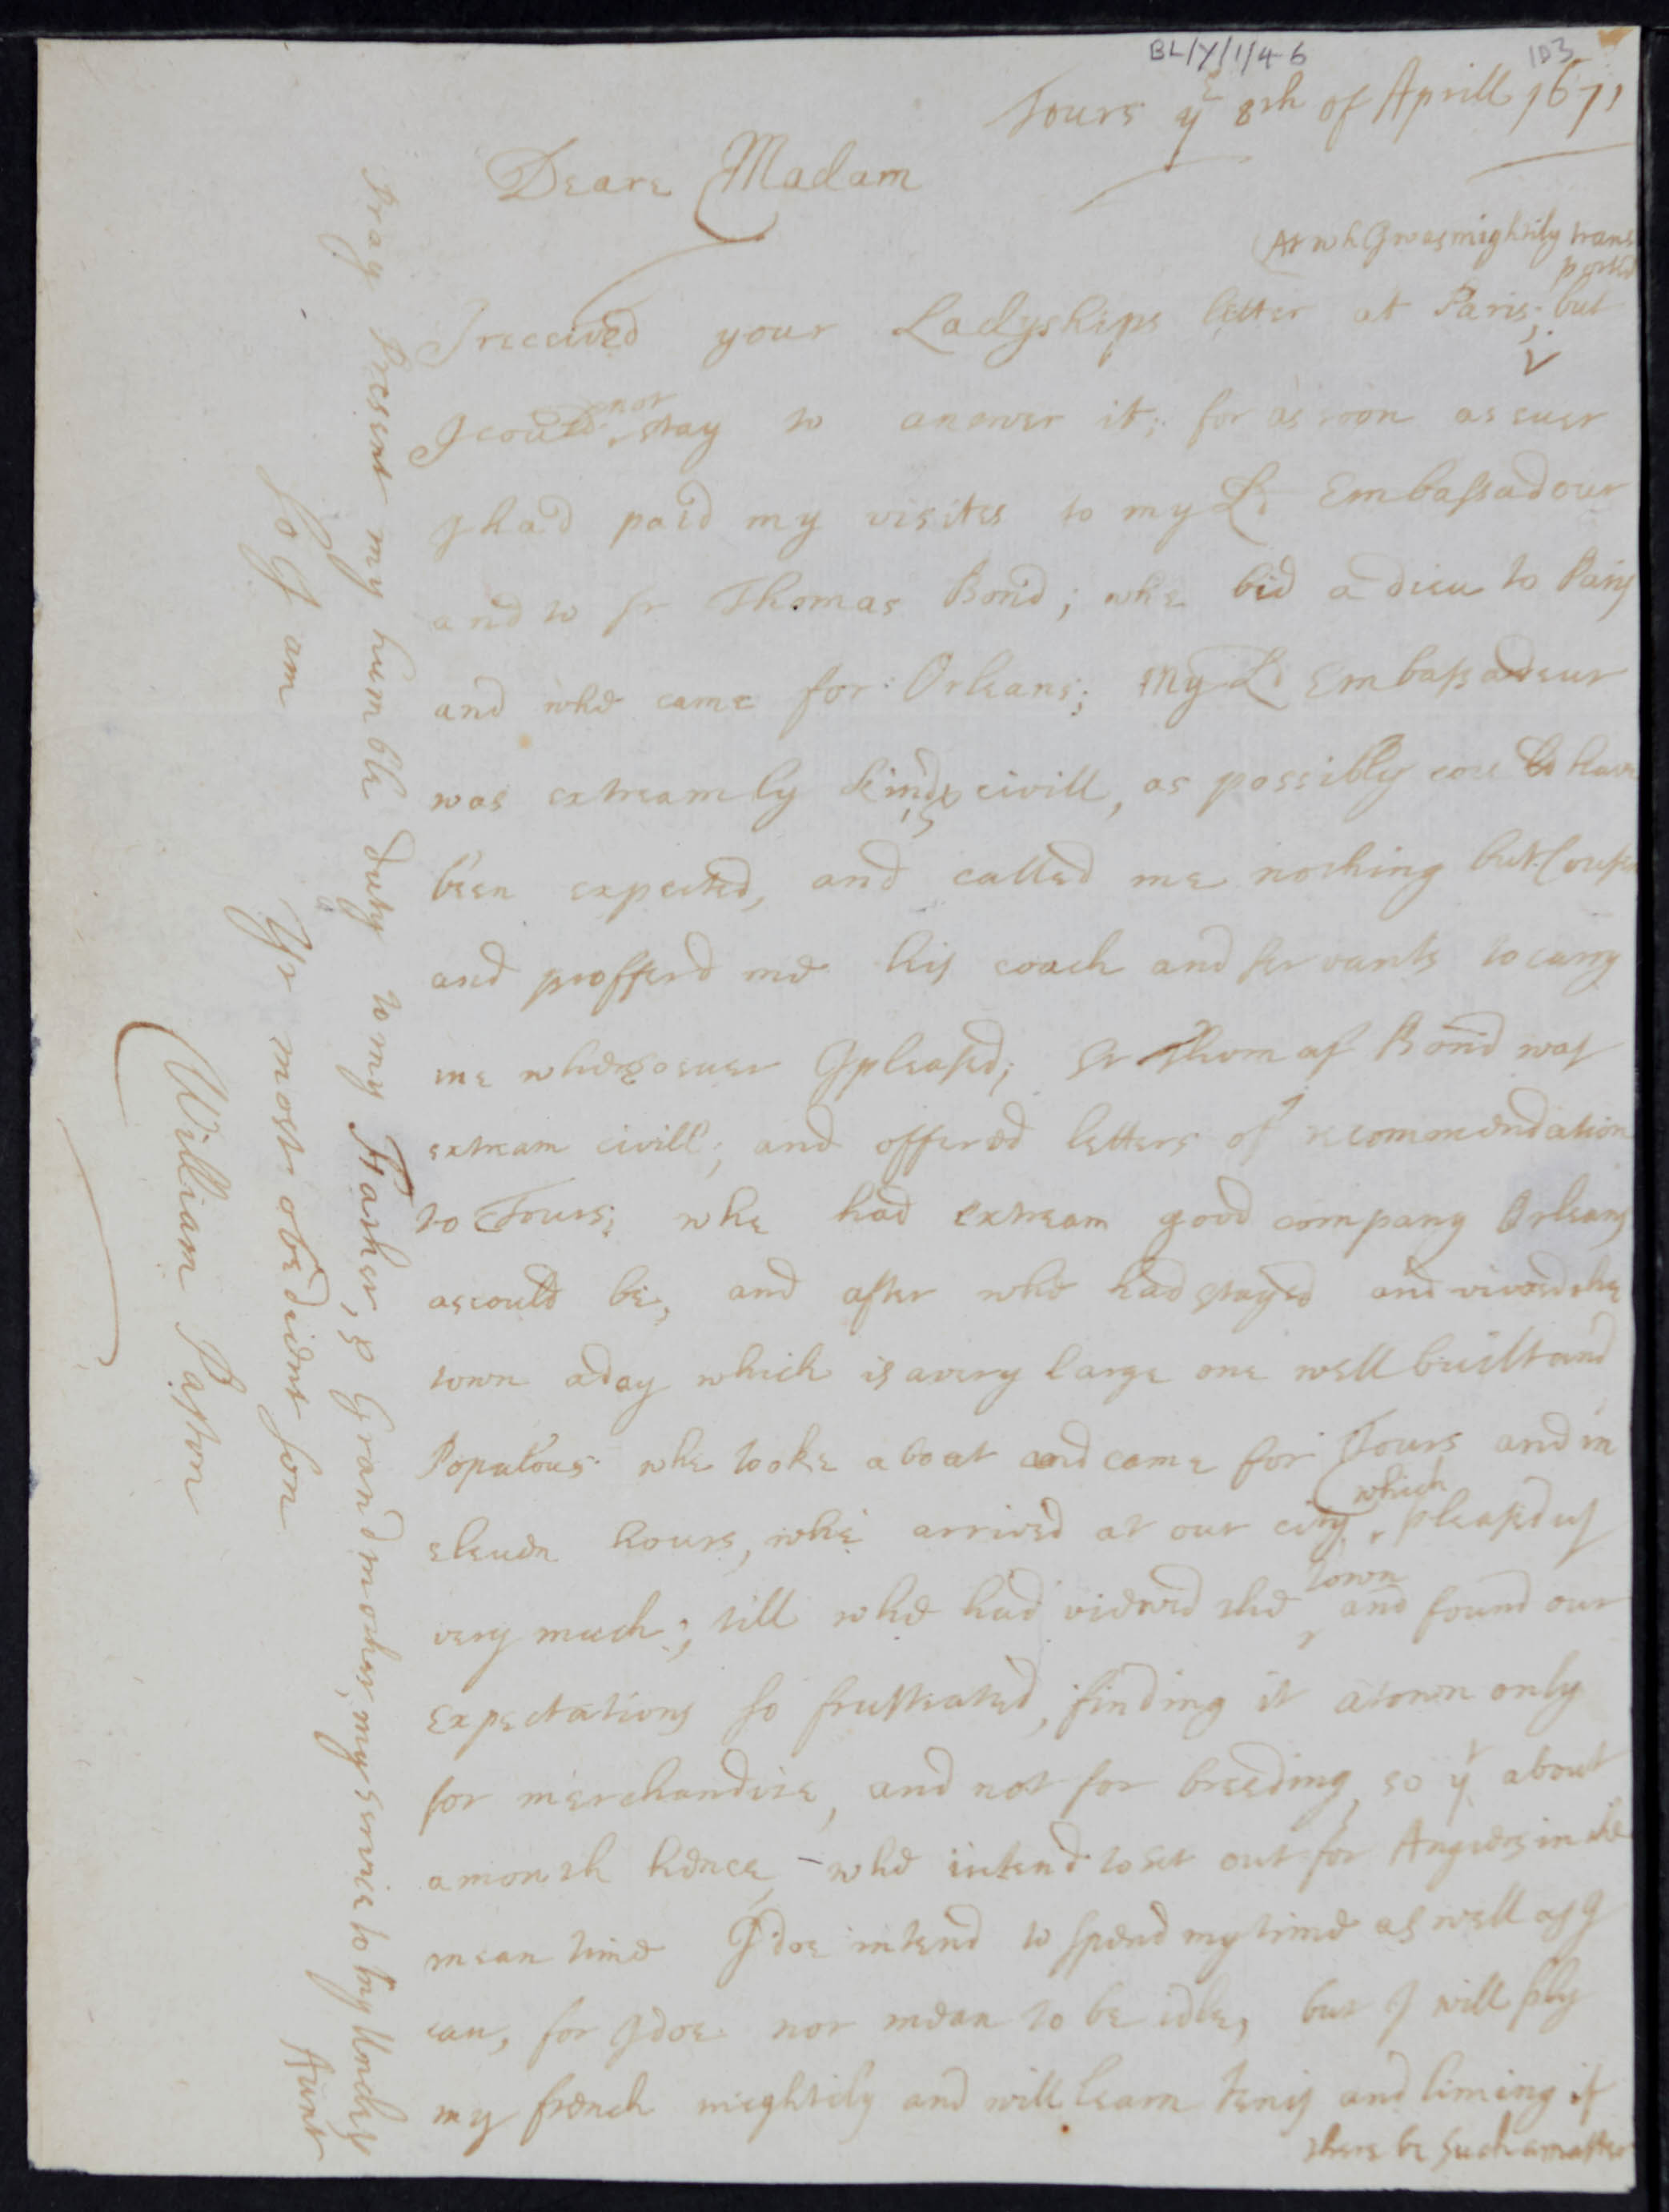 BL/Y/1/46
103
Tours ye 8th of Aprill 1671
Deare Madam
At wh I was mightily trans
ported
I received your Ladyships letter at Paris; but
I could not stay to answer it; for as soon as euer
I had paid my visites to my Ld Embassadour
and to Sr Thomas Bond; whe bid adieu to Paris
and whe came for Orleans; My Ld Embassadeur
was extreamly kind & civill, as possibly coud have
been expected, and called me nothing but Cousen
and profferd me his coach and servants to carry
me whersoever I pleased; Sr Thomas Bond was
extream civill, and offered letters of recommendation
to Tours; whe had extream good company Orleans
as could be, and after whe had stayed and viwed the
town a day which is a very large one well built and
Populous whe tooke a boat and came for Tours and in
eleuen hours, whe arrived at our city which pleased us
very much; till whe had viewed the town and found our
expectations so frustrated, finding it a town only
for merchandize, and not for breeding, so yt about
a month hence, whe intend to set out for Angiers in the
mean time I doe intend to spend my time as well as I
can, for I doe not mean to be idle, but I will ply
my french mightily and will learn tenis and liming if
there be such a master
Pray Present my humble duty to my Father, & Grandmother, my service to my Uncles
Aunt
So I am
Yr most obedient son
William Paston